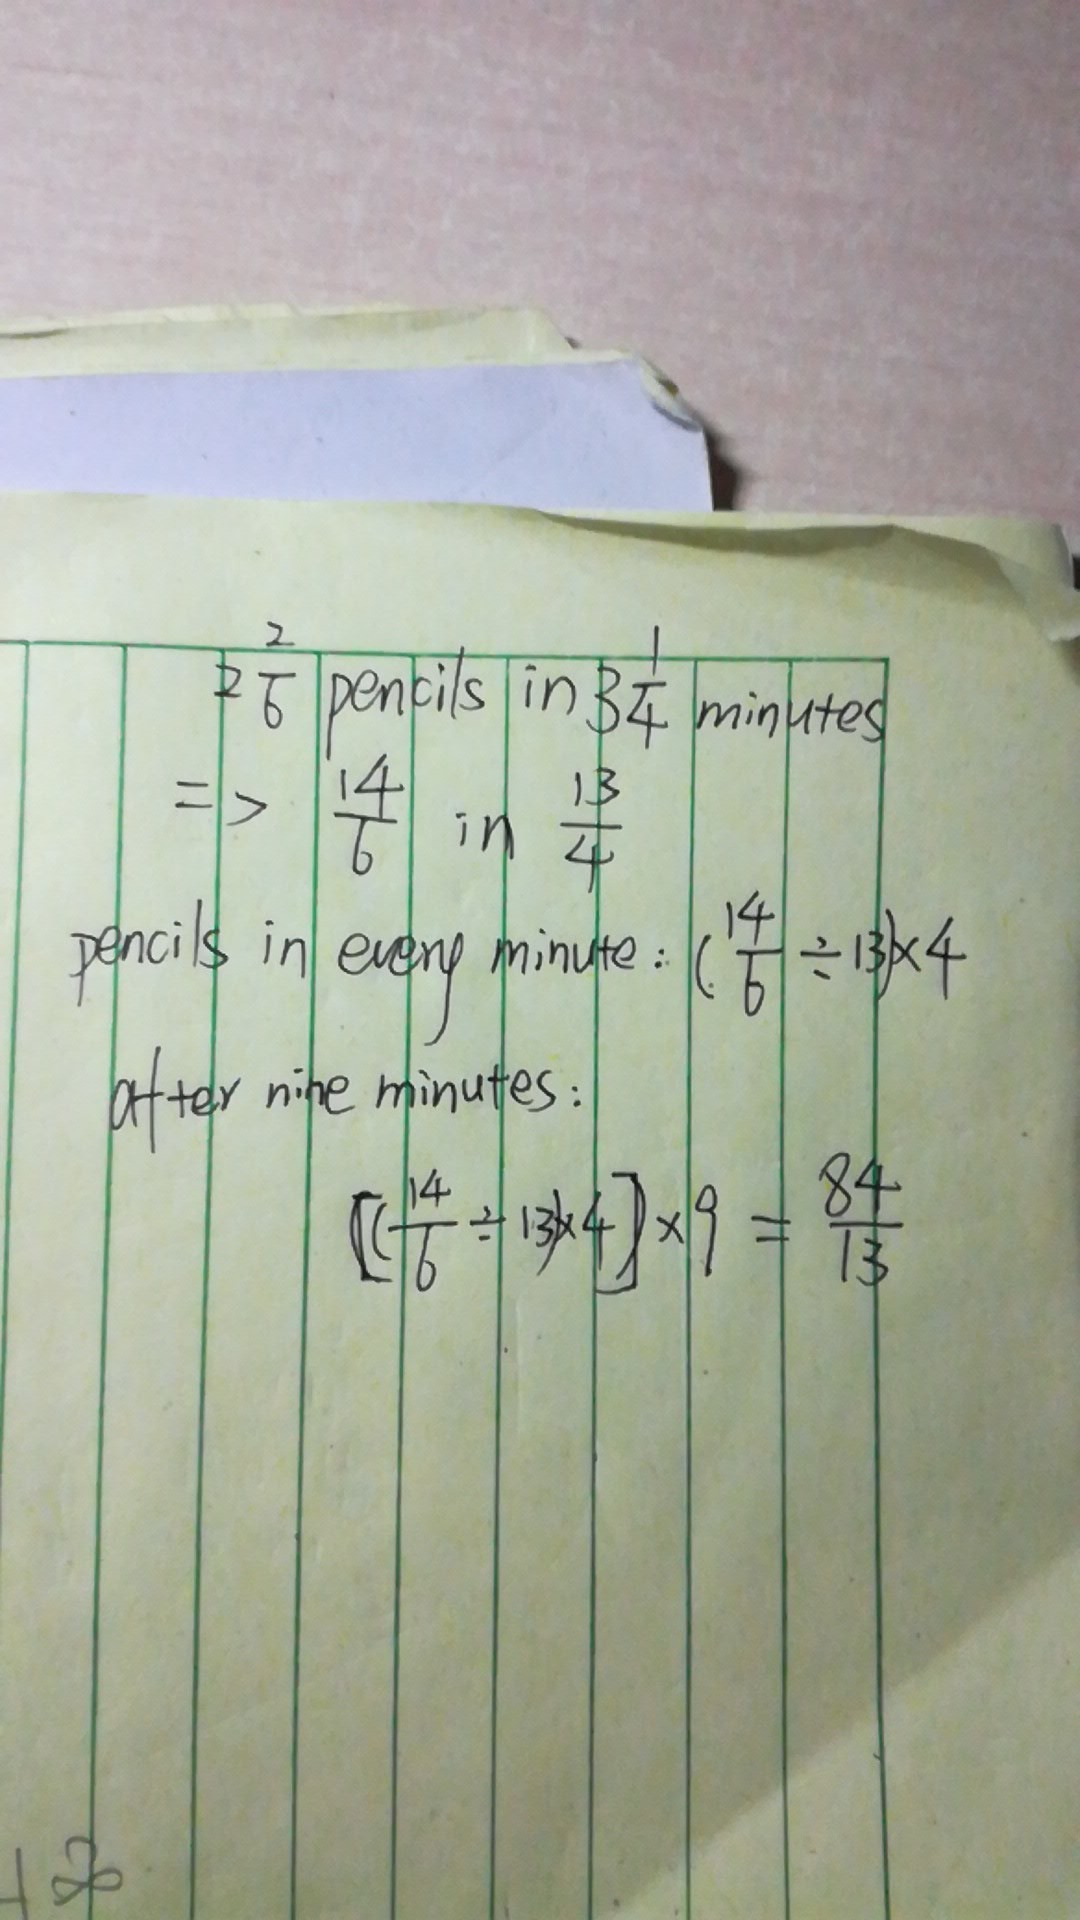 2 2/6 pencils in 3 1/4 minutes
=> 14/6 in 13/4
pencils in every minute: (14/6 ÷ 13)×4
after nine minutes:
[(14/6 ÷ 13)×4]×9 = 84/13